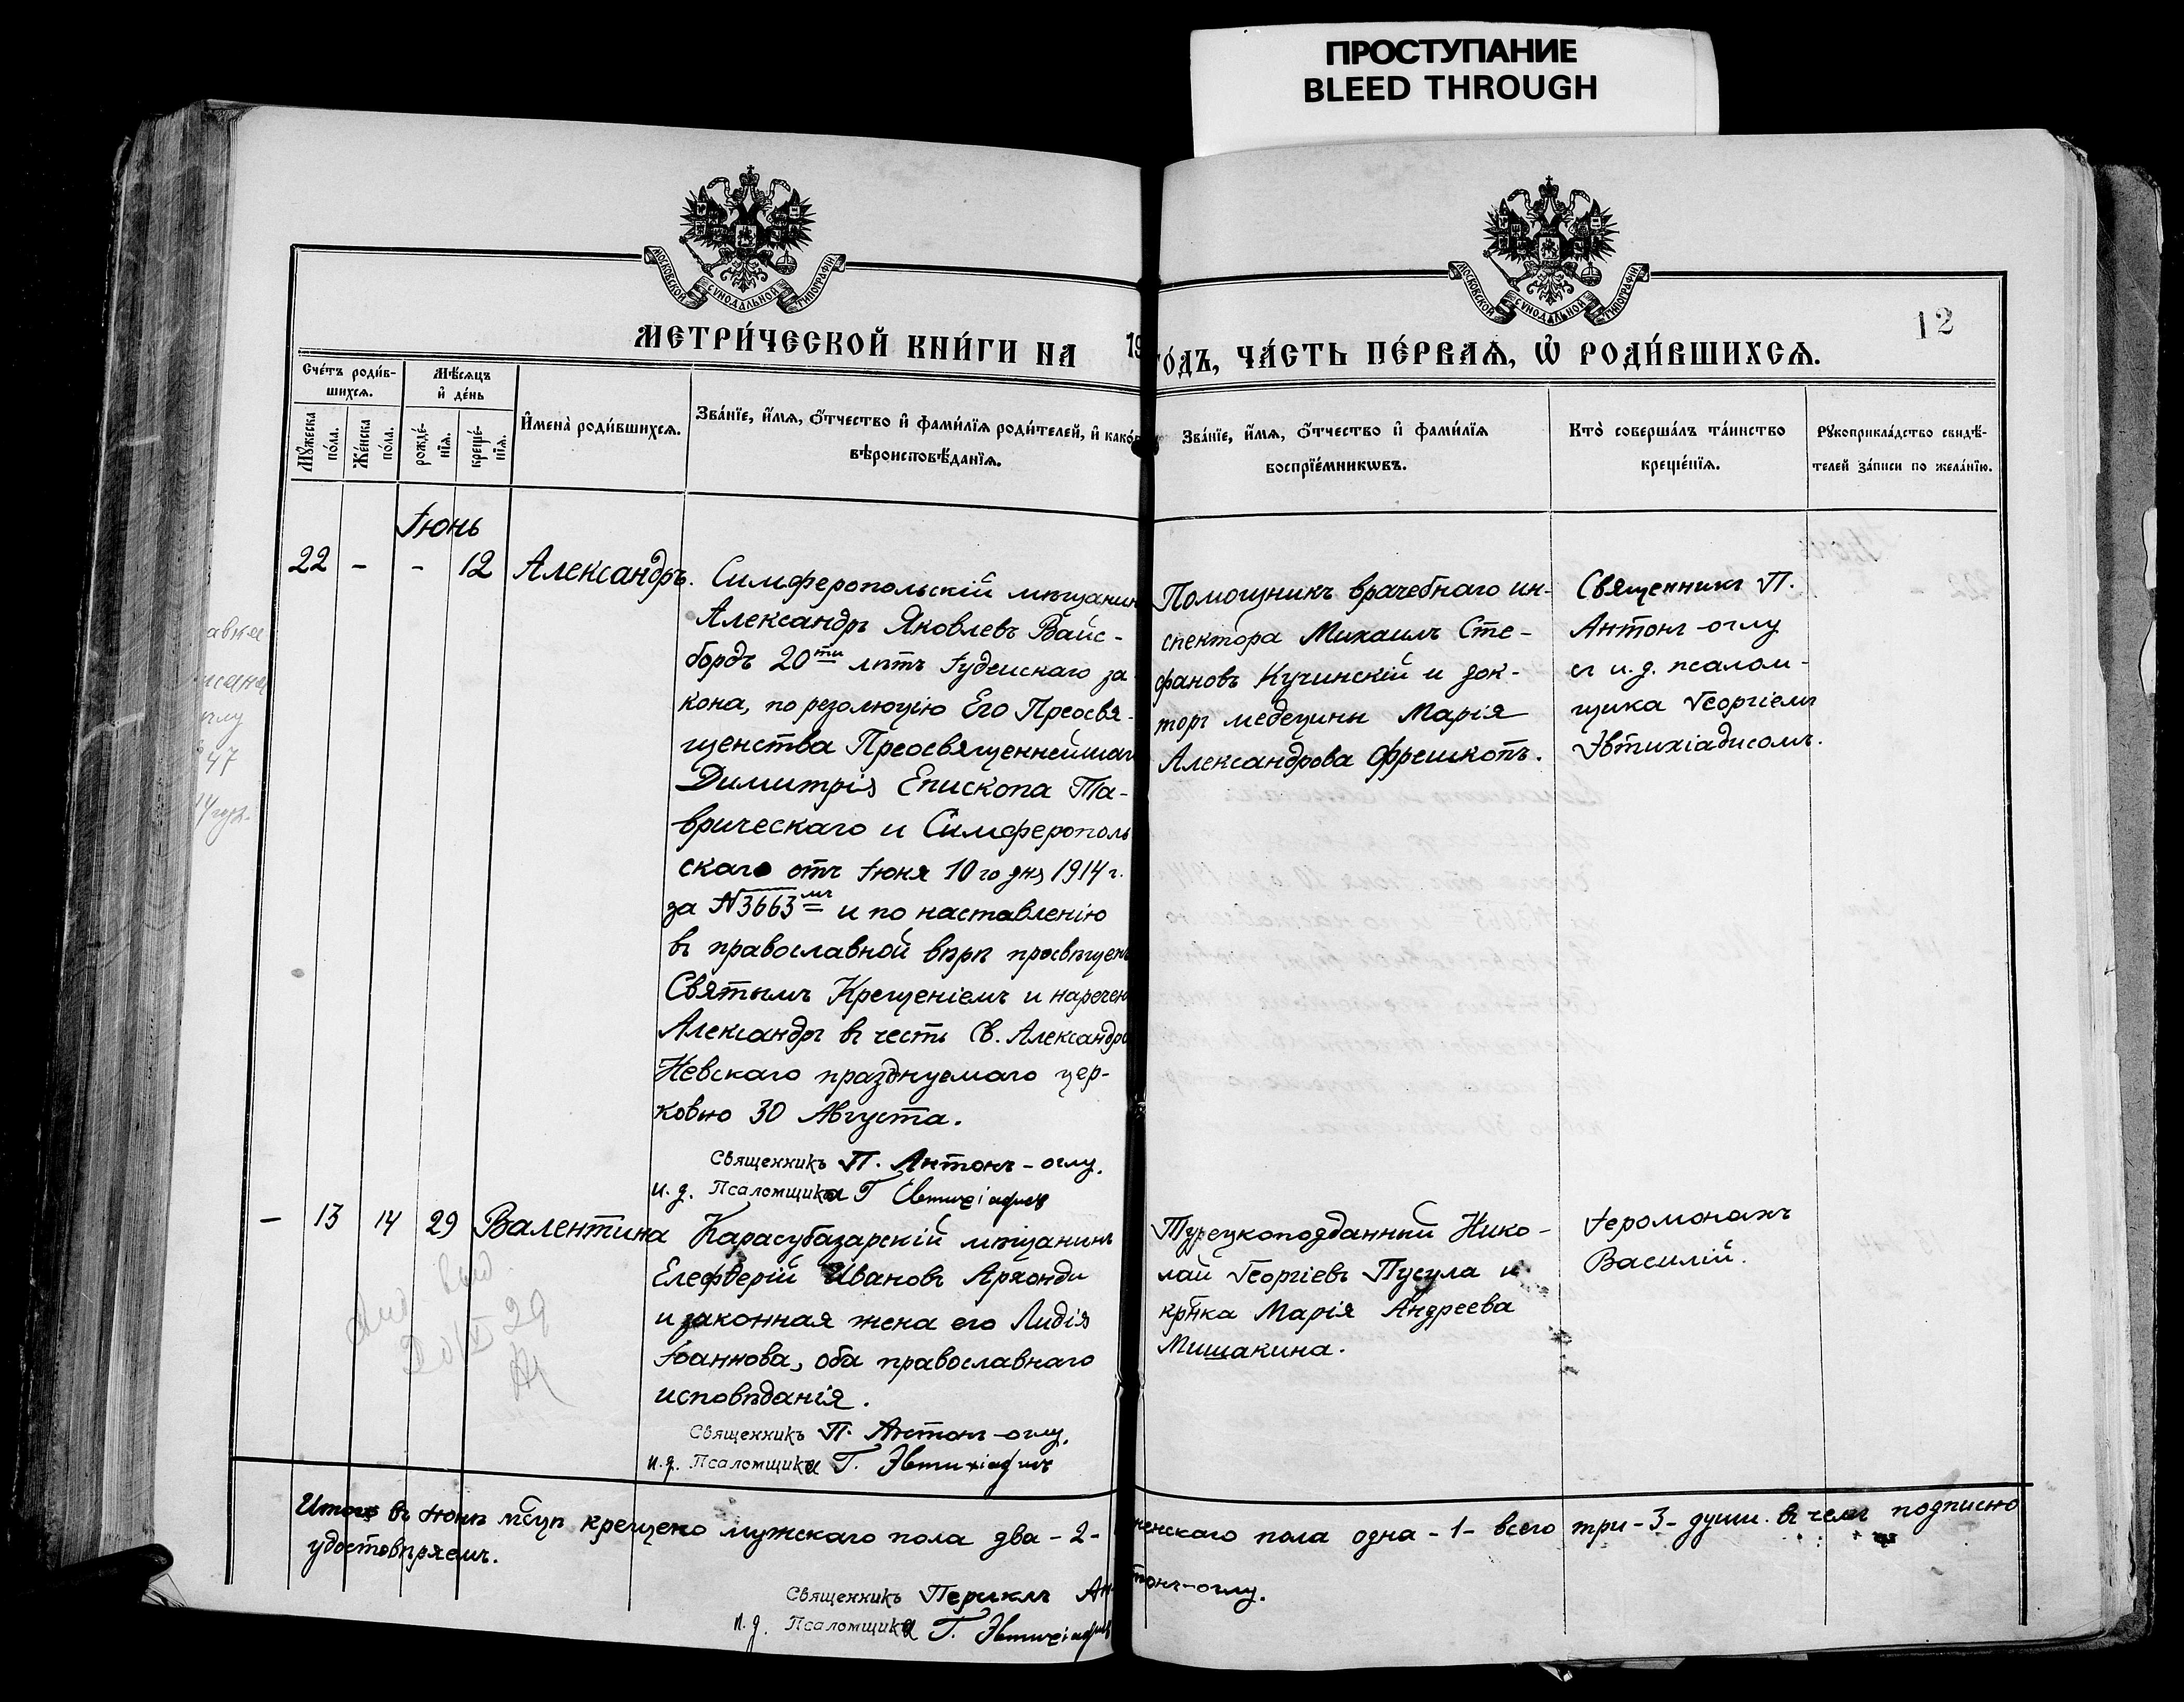 ПРОСТУПАНИЕ
BLEED THROUGH
МОСКОВСКОЙ СУНОДАЛЬНОЙ ТИПОГРАФІИ
МОСКОВСКОЙ СУНОДАЛЬНОЙ ТИПОГРАФІИ
12
МЕТРИ́ЧЕСКОЙ КНИ́ГИ НА 19
ГО́ДЪ, ЧА́СТЬ ПЕ́РВАѦ, Ѡ҆ РОДИ́ВШИХСѦ.
Сче́тъ роди́в-
шихсѧ.
Мѣ́сѧцъ
и҆ де́нь
Мꙋ́жеска
по́ла.
Же́нска
по́ла.
рожде́-
нїѧ.
креще́-
нїѧ.
И҆мена̀ роди́вшихсѧ.
Зва́нїе, и҆́мѧ, ѻ҆́тчество и҆ фами́лїѧ роди́телей, и҆ како́в
вѣроисповѣ́данїѧ.
Зва́нїе, и҆́мѧ, ѻ҆́тчество и҆ фами́лїѧ
воспрїе́мникѡвъ.
Кто̀ соверша́лъ та́инство
креще́нїѧ.
Рꙋкоприкла́дство свидѣ́-
телей за́писи по жела́нїю.
Іюнь
22 - - 12 Александръ.
Симферопольскій мѣщанин
Александръ Яковлевъ Вайс-
бордъ 20ти лѣтъ Іудейскаго за-
кона, по резолюцію Его Преосвя-
щенства Преосвященнейшаг
Димитрія Епископа Та-
врическаго и Симферополь
скаго отъ Іюня 10го дня 1914 г.
за №3663мъ и по наставленію
въ православной вѣрѣ просвѣщен
Святымъ Крещеніемъ и наречен
Александръ въ честь Св. Александра
Невскаго празднуемаго цер-
ковью 30 Августа.
Священникъ П. Антонъ-оглу.
и. д. Псаломщика Г Евтихіадисъ
Помощникъ врачебнаго ин-
спектора Михаилъ Сте-
фановъ Кучинскій и док-
торъ медецины Марія
Александрова Фрешкопъ.
Священникъ П.
Антонъ-оглу
съ и. д. псалом-
щика Георгіемъ
Эвтихіадисомъ.
- 13 14 29 Валентина
Карасубазарскій мѣщанинъ
Елефѳерій Ивановъ Архонди
и законная жена его Лидія
Іоаннова, оба православнаго
исповѣданія.
Священникъ П. Антонъ-оглу.
и. д. Псаломщика Г. Эвтихіадисъ
Турецкоподданный Нико-
лай Георгіевъ Пусула и
крѣнка Марія Андреева
Мишакина.
Іеромонахъ
Василій.
29
Итого въ Іюнѣ мѣсцѣ крещено мужскаго пола два-2- женскаго пола одна-1- всего три-3- души. въ чемъ подписью
удостовѣряемъ.
Священникъ Периклъ Антонъ-оглу.
и. д. Псаломщика Г. Эвтихіадисъ